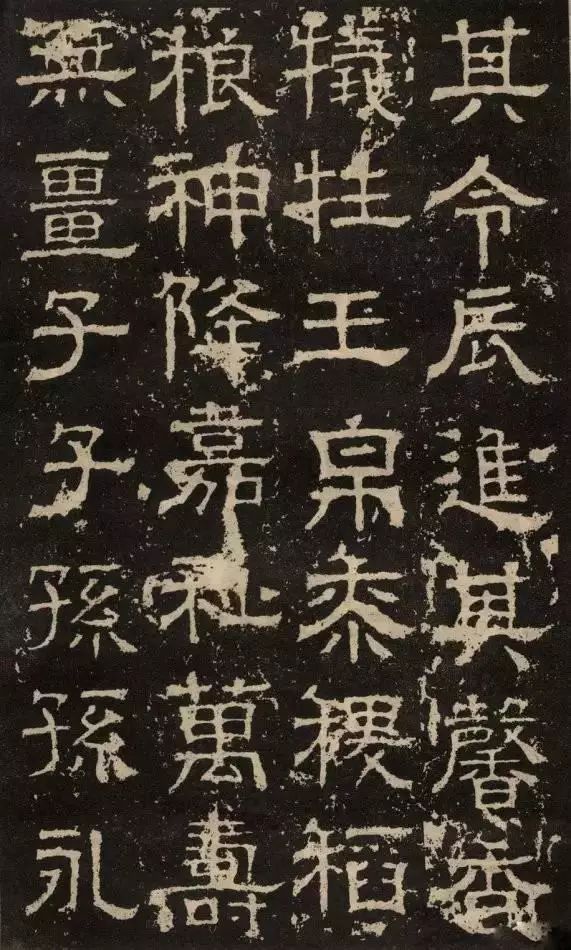 其令辰進其馨香
犧牲王帛黍稷稻
糧神降嘉祉萬壽
無畺子子孫孫永